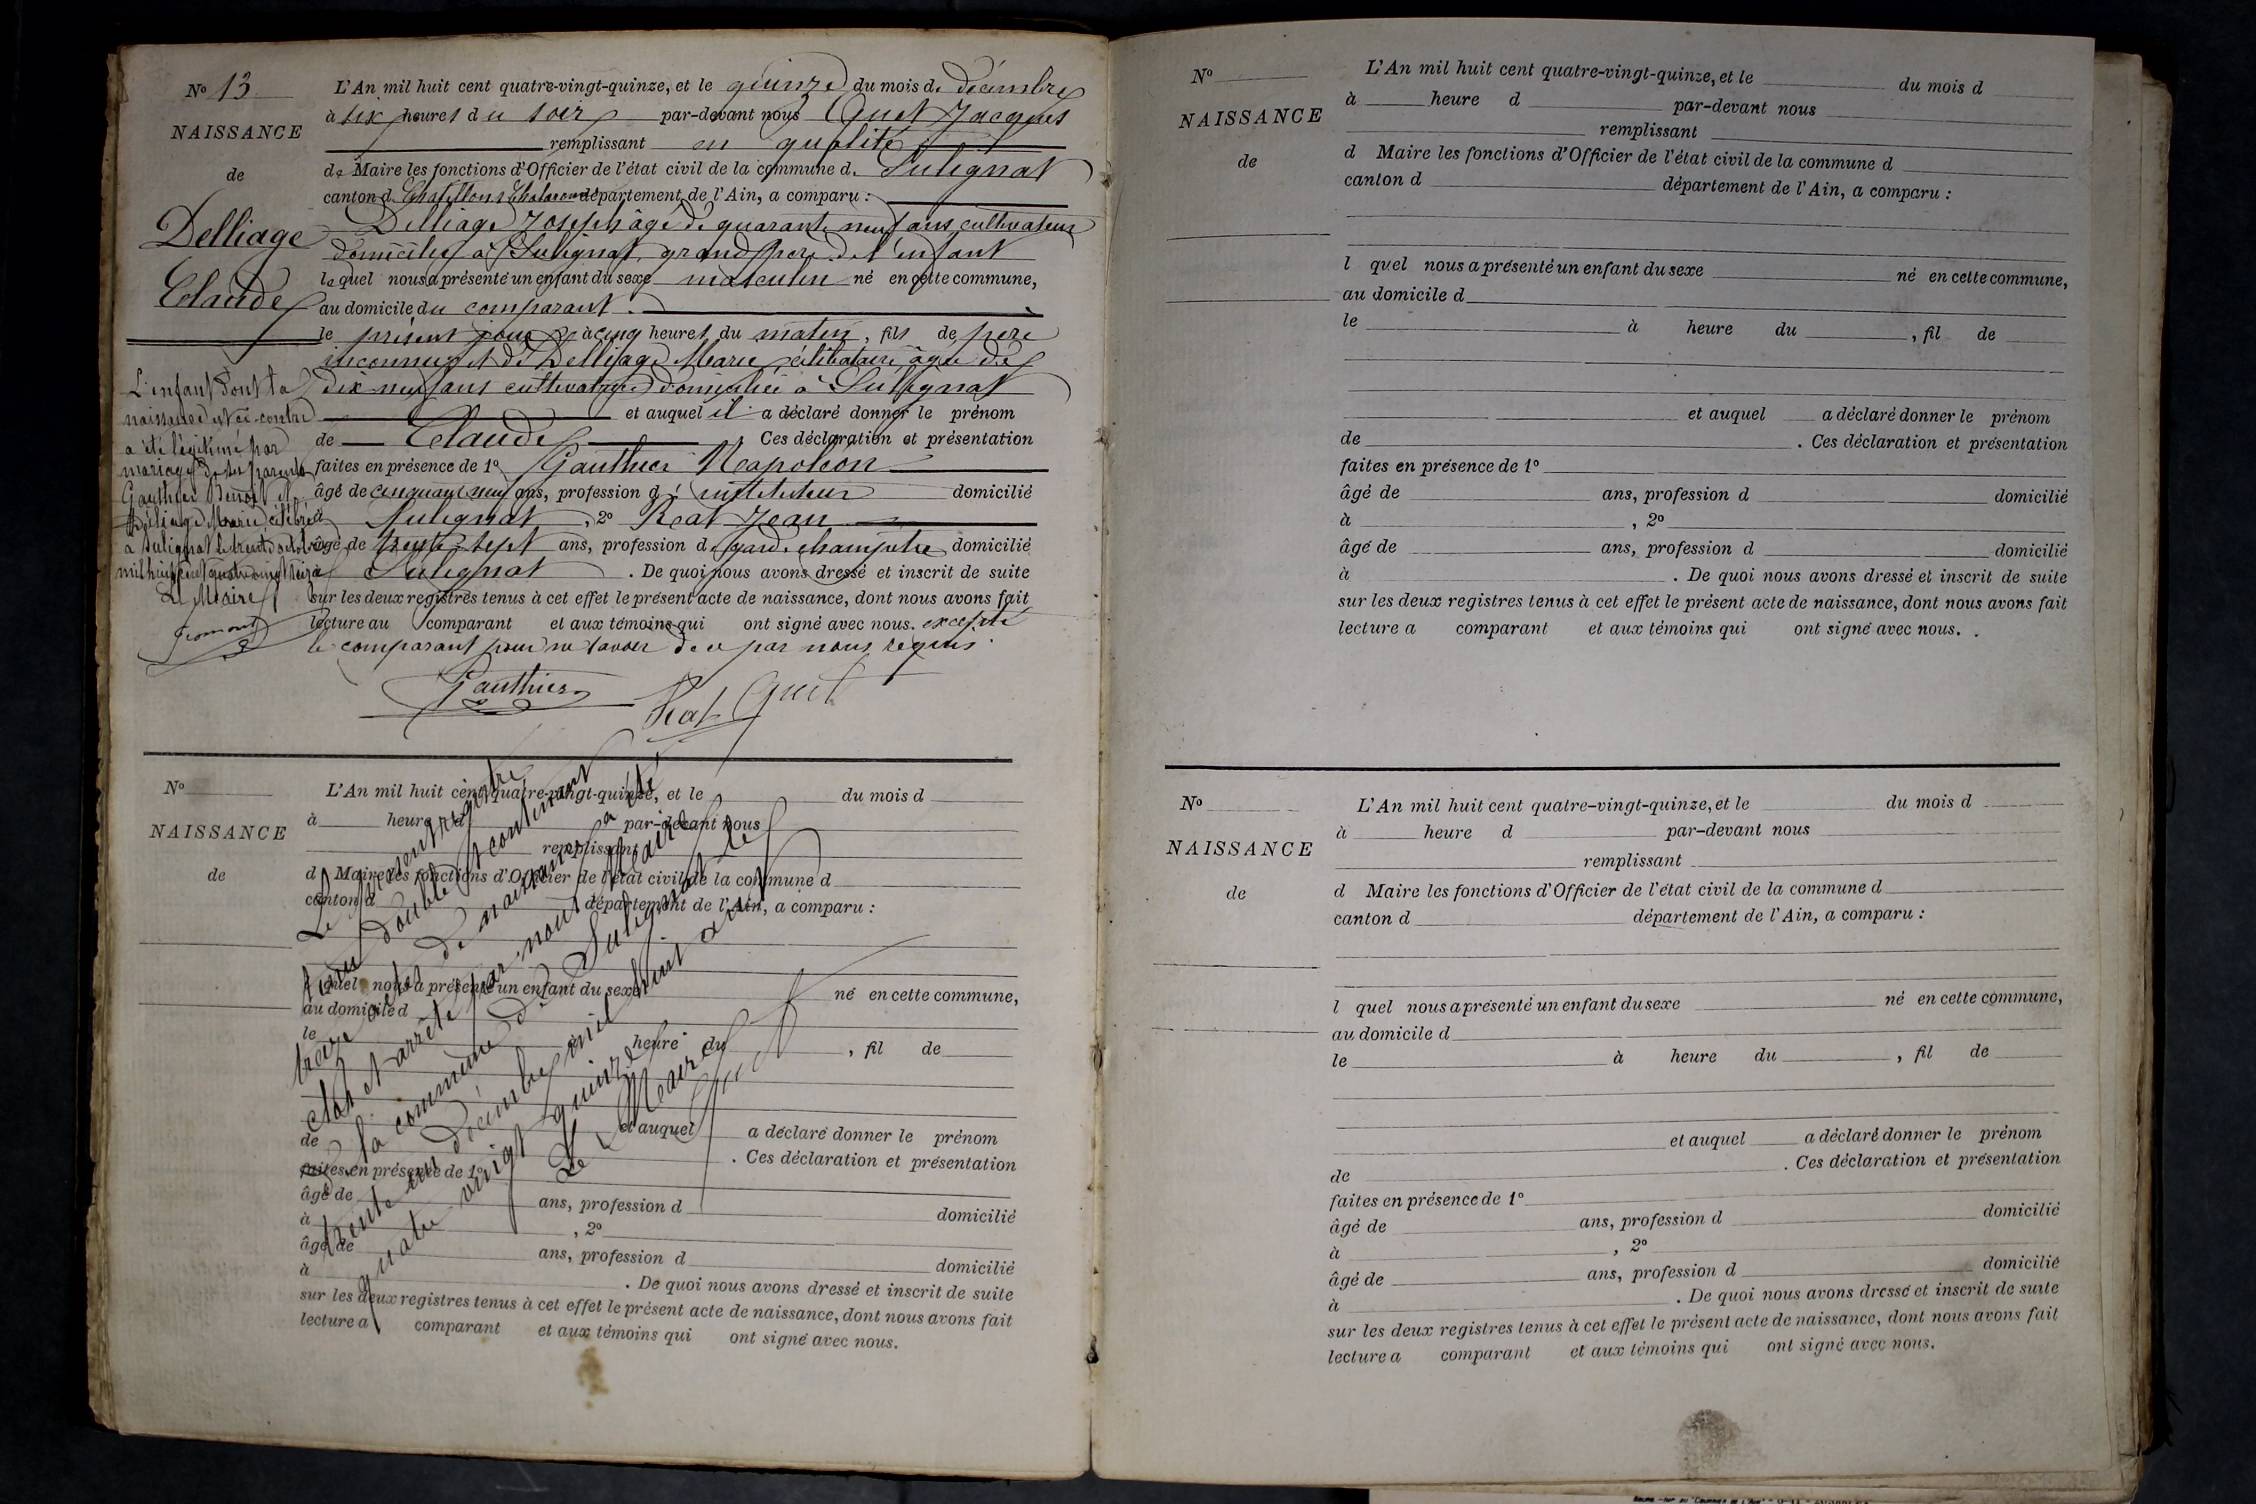 No 13
NAISSANCE
de
Delliage
Claude
L'An mil huit cent quatre-vingt-quinze, et le quinze du mois de décembre
à six heures du soir par-devant nous Quet Jacques
remplissant en qualité
de Maire les fonctions d'Officier de l'état civil de la commune de Sulignat
canton de Chatillon s Chalaronne département de l'Ain, a comparu :
Delliage Joseph âgé de quarante neuf ans cultivateur
domicilié à Sulignat, grand père de l'enfant
lequel nous a présenté un enfant du sexe masculin né en cette commune,
au domicile du comparant.
le présent jour à cinq heures du matin, fils de père
inconnu et de Delliage Marie célibataire âgée de
dix neuf ans cultivatrice domiciliée à Sulignat
et auquel il a déclaré donner le prénom
de Claude . Ces déclaration et présentation
faites en présence de 1º Gauthier Napoléon
âgé de cinquante neuf ans, profession d'instituteur domicilié
à Sulignat, 2º Réat Jean
âgé de trente-sept ans, profession de garde champêtre domicilié
à Sulignat . De quoi nous avons dressé et inscrit de suite
sur les deux registres tenus à cet effet le présent acte de naissance, dont nous avons fait
lecture au comparant et aux témoins qui ont signé avec nous. excepté
le comparant pour ne savoir de ce par nous requis.
Gauthier Réat Quet
L'enfant dont la
naissance est ci-contre
a été légitimé par
mariage de ses parents
Gauthier Benoit et
Delliage Marie célébré
à Sulignat le trente octobre
mil huit cent quatre vingt seize
Le Maire
Fromont
No
NAISSANCE
de
L'An mil huit cent quatre-vingt-quinze, et le du mois d
à heure d par-devant nous
remplissant
d Maire les fonctions d'Officier de l'état civil de la commune d
canton d département de l'Ain, a comparu :
l quel nous a présenté un enfant du sexe né en cette commune,
au domicile d
le à heure du , fil de
et auquel a déclaré donner le prénom
de . Ces déclaration et présentation
faites en présence de 1º
âgé de ans, profession d domicilié
à , 2º
âgé de ans, profession d domicilié
à . De quoi nous avons dressé et inscrit de suite
sur les deux registres tenus à cet effet le présent acte de naissance, dont nous avons fait
lecture a comparant et aux témoins qui ont signé avec nous.
Le présent registre
tenu double et contenant
treize actes de naissance a été
clos et arrêté par nous Maire
de la commune de Sulignat le
trente un décembre mil huit cent
quatre vingt quinze
Le Maire
Quet
No
NAISSANCE
de
L'An mil huit cent quatre-vingt-quinze, et le du mois d
à heure d par-devant nous
remplissant
d Maire les fonctions d'Officier de l'état civil de la commune d
canton d département de l'Ain, a comparu :
l quel nous a présenté un enfant du sexe né en cette commune,
au domicile d
le à heure du , fil de
et auquel a déclaré donner le prénom
de . Ces déclaration et présentation
faites en présence de 1º
âgé de ans, profession d domicilié
à , 2º
âgé de ans, profession d domicilié
à . De quoi nous avons dressé et inscrit de suite
sur les deux registres tenus à cet effet le présent acte de naissance, dont nous avons fait
lecture a comparant et aux témoins qui ont signé avec nous.
No
NAISSANCE
de
L'An mil huit cent quatre-vingt-quinze, et le du mois d
à heure d par-devant nous
remplissant
d Maire les fonctions d'Officier de l'état civil de la commune d
canton d département de l'Ain, a comparu :
l quel nous a présenté un enfant du sexe né en cette commune,
au domicile d
le à heure du , fil de
et auquel a déclaré donner le prénom
de . Ces déclaration et présentation
faites en présence de 1º
âgé de ans, profession d domicilié
à , 2º
âgé de ans, profession d domicilié
à . De quoi nous avons dressé et inscrit de suite
sur les deux registres tenus à cet effet le présent acte de naissance, dont nous avons fait
lecture a comparant et aux témoins qui ont signé avec nous.